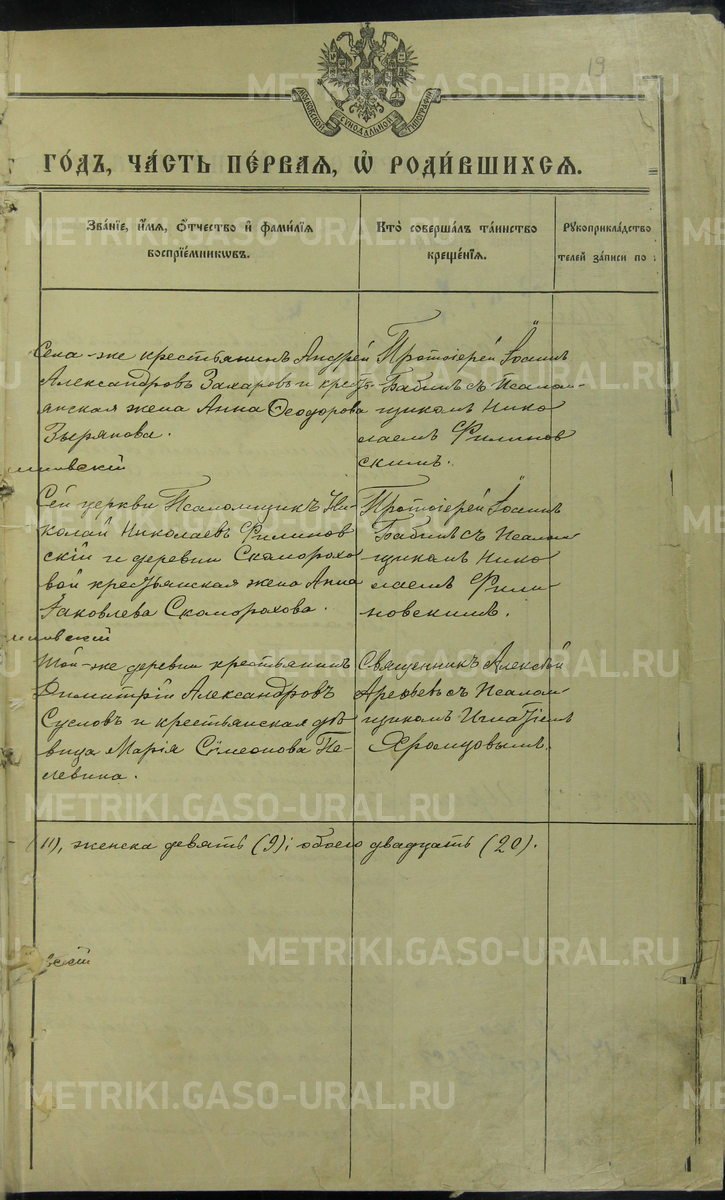 19
МОСКОВСКОЙ СУНОДАЛЬНОЙ ТИПОГРАФІИ
ГО́ДЪ, ЧА́СТЬ ПЕ́РВАЯ, Ѽ РОДИ́ВШИХСЯ.
Зва́нїе, и҆́мя, ѻ҆́тчество и҆ фами́лїя
воспрїе́мникѡвъ.
Кто̀ соверша́лъ та́инство
креще́нїя.
Рꙋкоприкла́дство
телей за́писи по
Села-же крестьянинъ Андрей
Александровъ Захаровъ и крестъ-
янская жена Анна Ѳеодорова
Зырянова.
Протоіерей Іоаннъ
Бабинъ съ Псалом-
щикомъ Нико
лаемъ Филинов
скимъ.
линовскій
Сей церкви Псаломщикъ Ни-
колай Николаевъ Филинов
скій и деревни Скоморохо
вой крестьянская жена Анна
Іаковлева Скоморохова.
Протоіерей Іоаннъ
Бабинъ съ Псалом
щикомъ Нико
лаемъ Фили-
новскимъ.
линовскій
Той-же деревни крестьянинъ
Димитрій Александровъ
Сусловъ и крестьянская дѣ
вица Марія Сѵмеонова Пе-
левина.
Священникъ Алексѣй
Арефьевъ съ Псалом-
щикомъ Игнатіемъ
Хромцовымъ.
11), женска девять (9); обоего двадцать (20).
вскій
METRIKI.GASO-URAL.RU